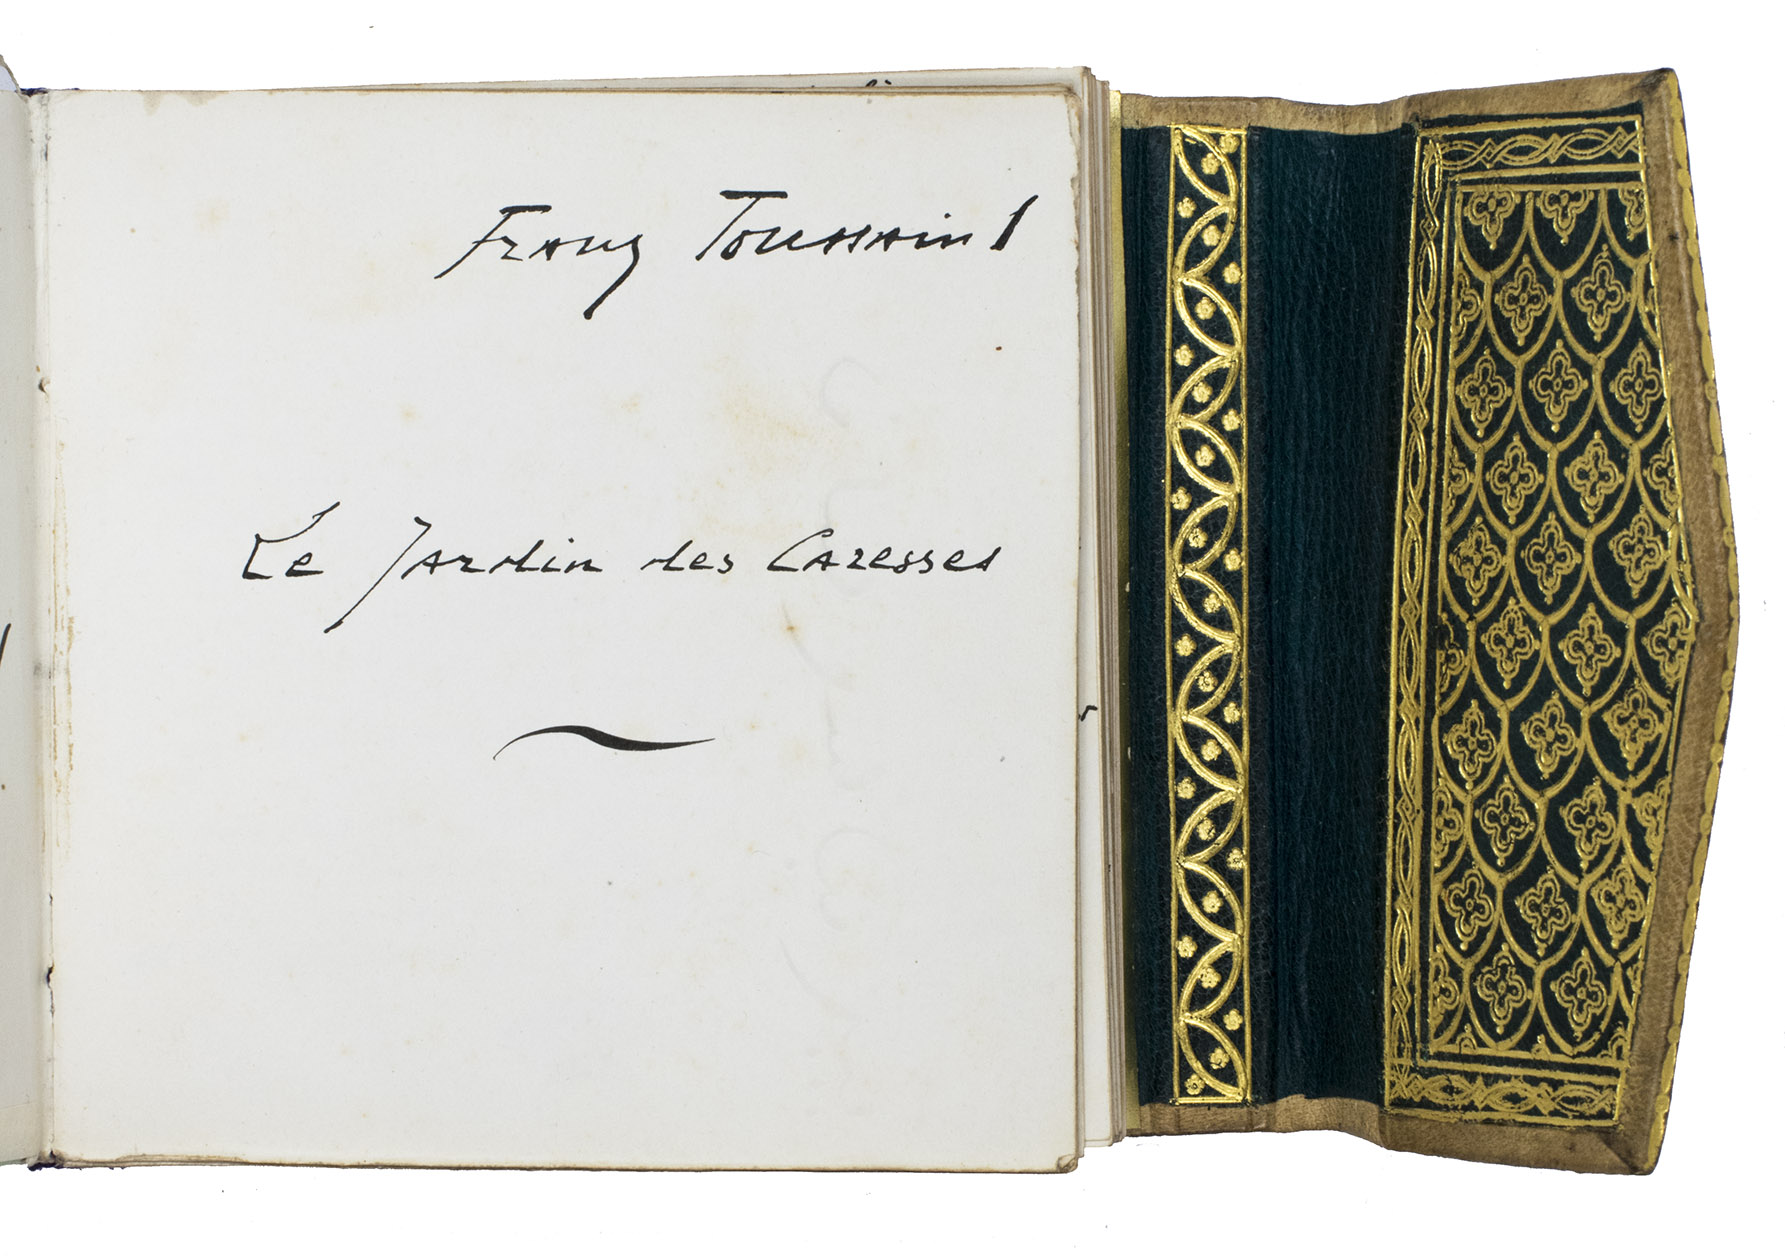 Franz Toussaint
Le Jardin des Caresses